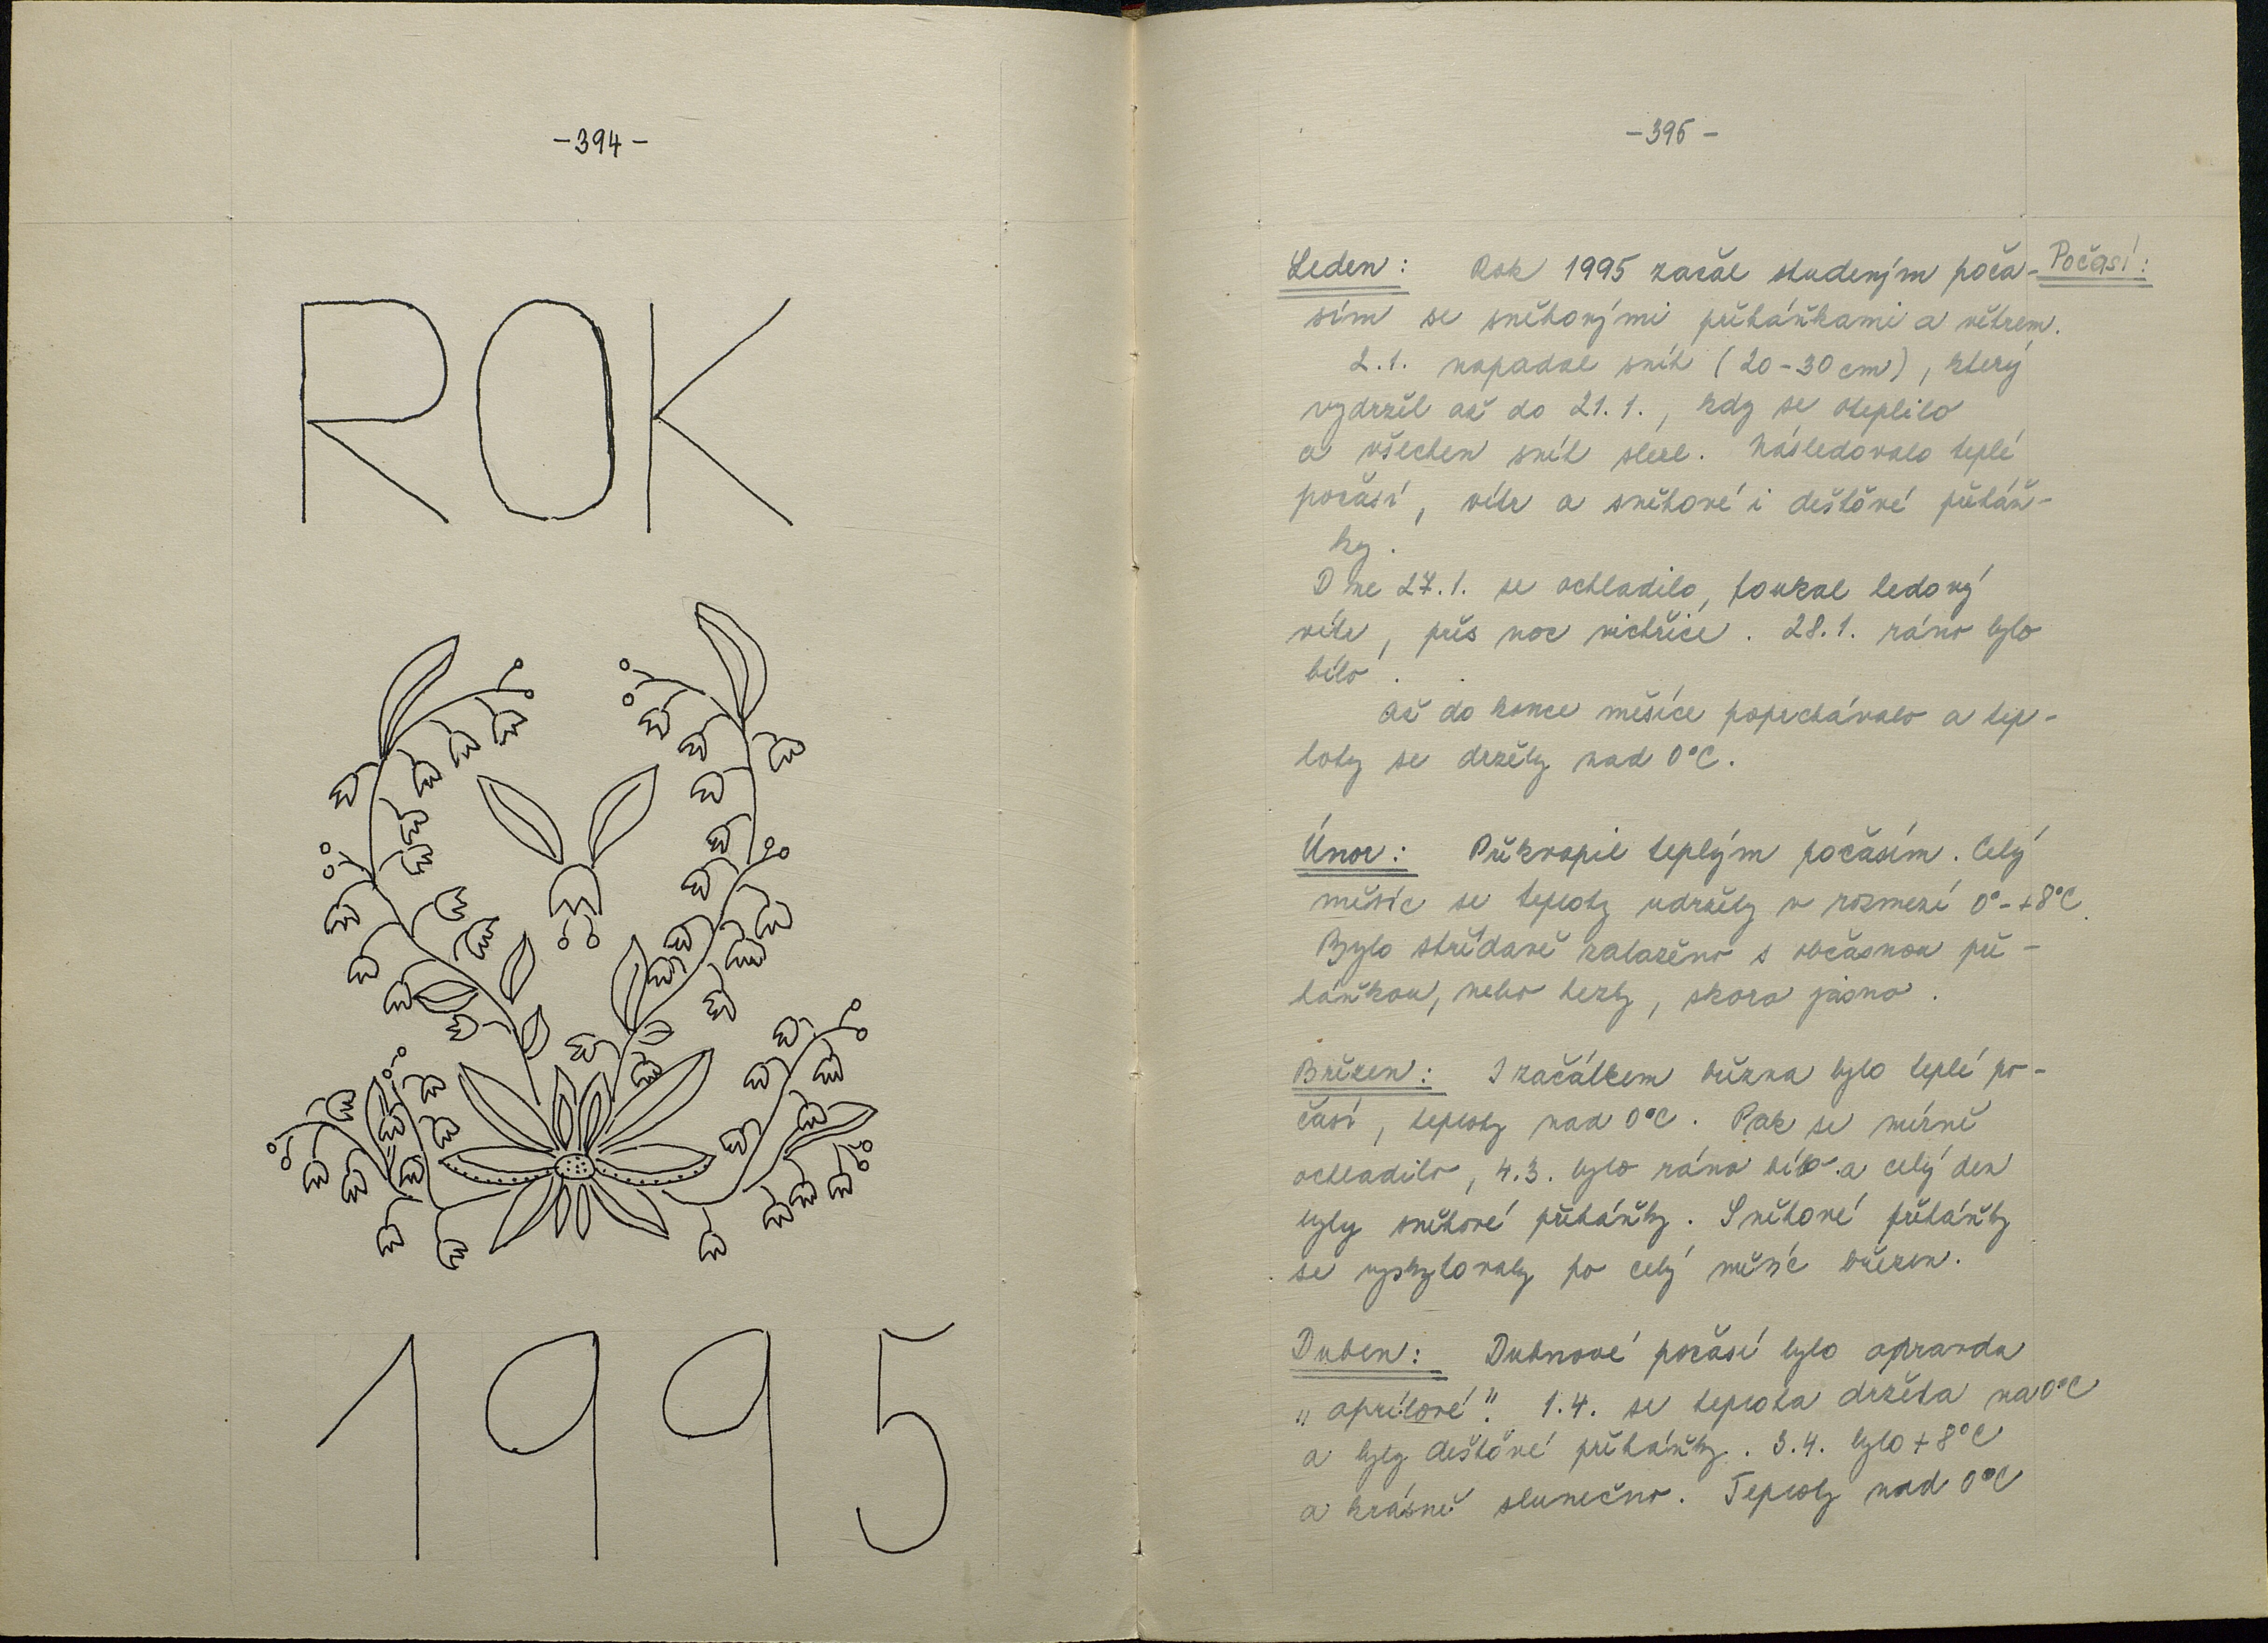 -394-
ROK
1995
-395-
Počasí:
Leden: Rok 1995 začal studeným poča-
sím se sněhovými přeháňkami a větrem.
2.1. napadal sníh (20-30 cm), který
vydržel až do 21.1., kdy se oteplilo
a všechen sníh slezl. Následovalo teplé
počasí, vítr a sněhové i dešťové přeháň-
ky.
Dne 27.1. se ochladilo, foukal ledový
vítr, přes noc vichřice. 28.1. ráno bylo
bílo.
Až do konce měsíce poprchávalo a tep-
loty se držely nad 0°C.
Únor: Překvapil teplým počasím. Celý
měsíc se teploty udržely v rozmezí 0°-+8°C.
Bylo střídavě zataženo s občasnou pře-
háňkou, nebo hezky, skoro jasno.
Březen: I začátkem března bylo teplé po-
časí, teploty nad 0°C. Pak se mírně
ochladilo, 4.3. bylo ráno bílo a celý den
byly sněhové přeháňky. Sněhové přeháňky
se vyskytovaly po celý měsíc březen.
Duben: Dubnové počasí bylo opravdu
„aprílové". 1.4. se teplota držela na 0°C
a byly dešťové přeháňky. 3.4. bylo +8°C
a krásně slunečno. Teploty nad 0°C